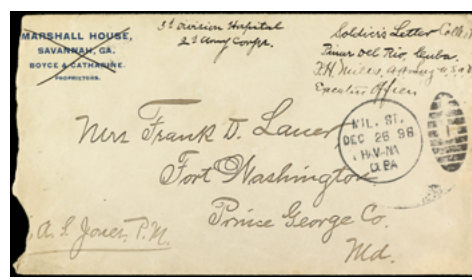 MARSHALL HOUSE,
SAVANNAH, GA.
BOYCE & CATHARINE.
PROPRIETORS.
3d Division Hospital
2d Army Corps.
Soldier's Letter
Pinar Del Rio, Cuba.
Executive Officer
MIL. ST.
DEC 26 98
HAV-NA
CUBA
Mrs Frank D. Lauer
Fort Washington
Prince George Co.
Md.
A. S. Jones, P.M.